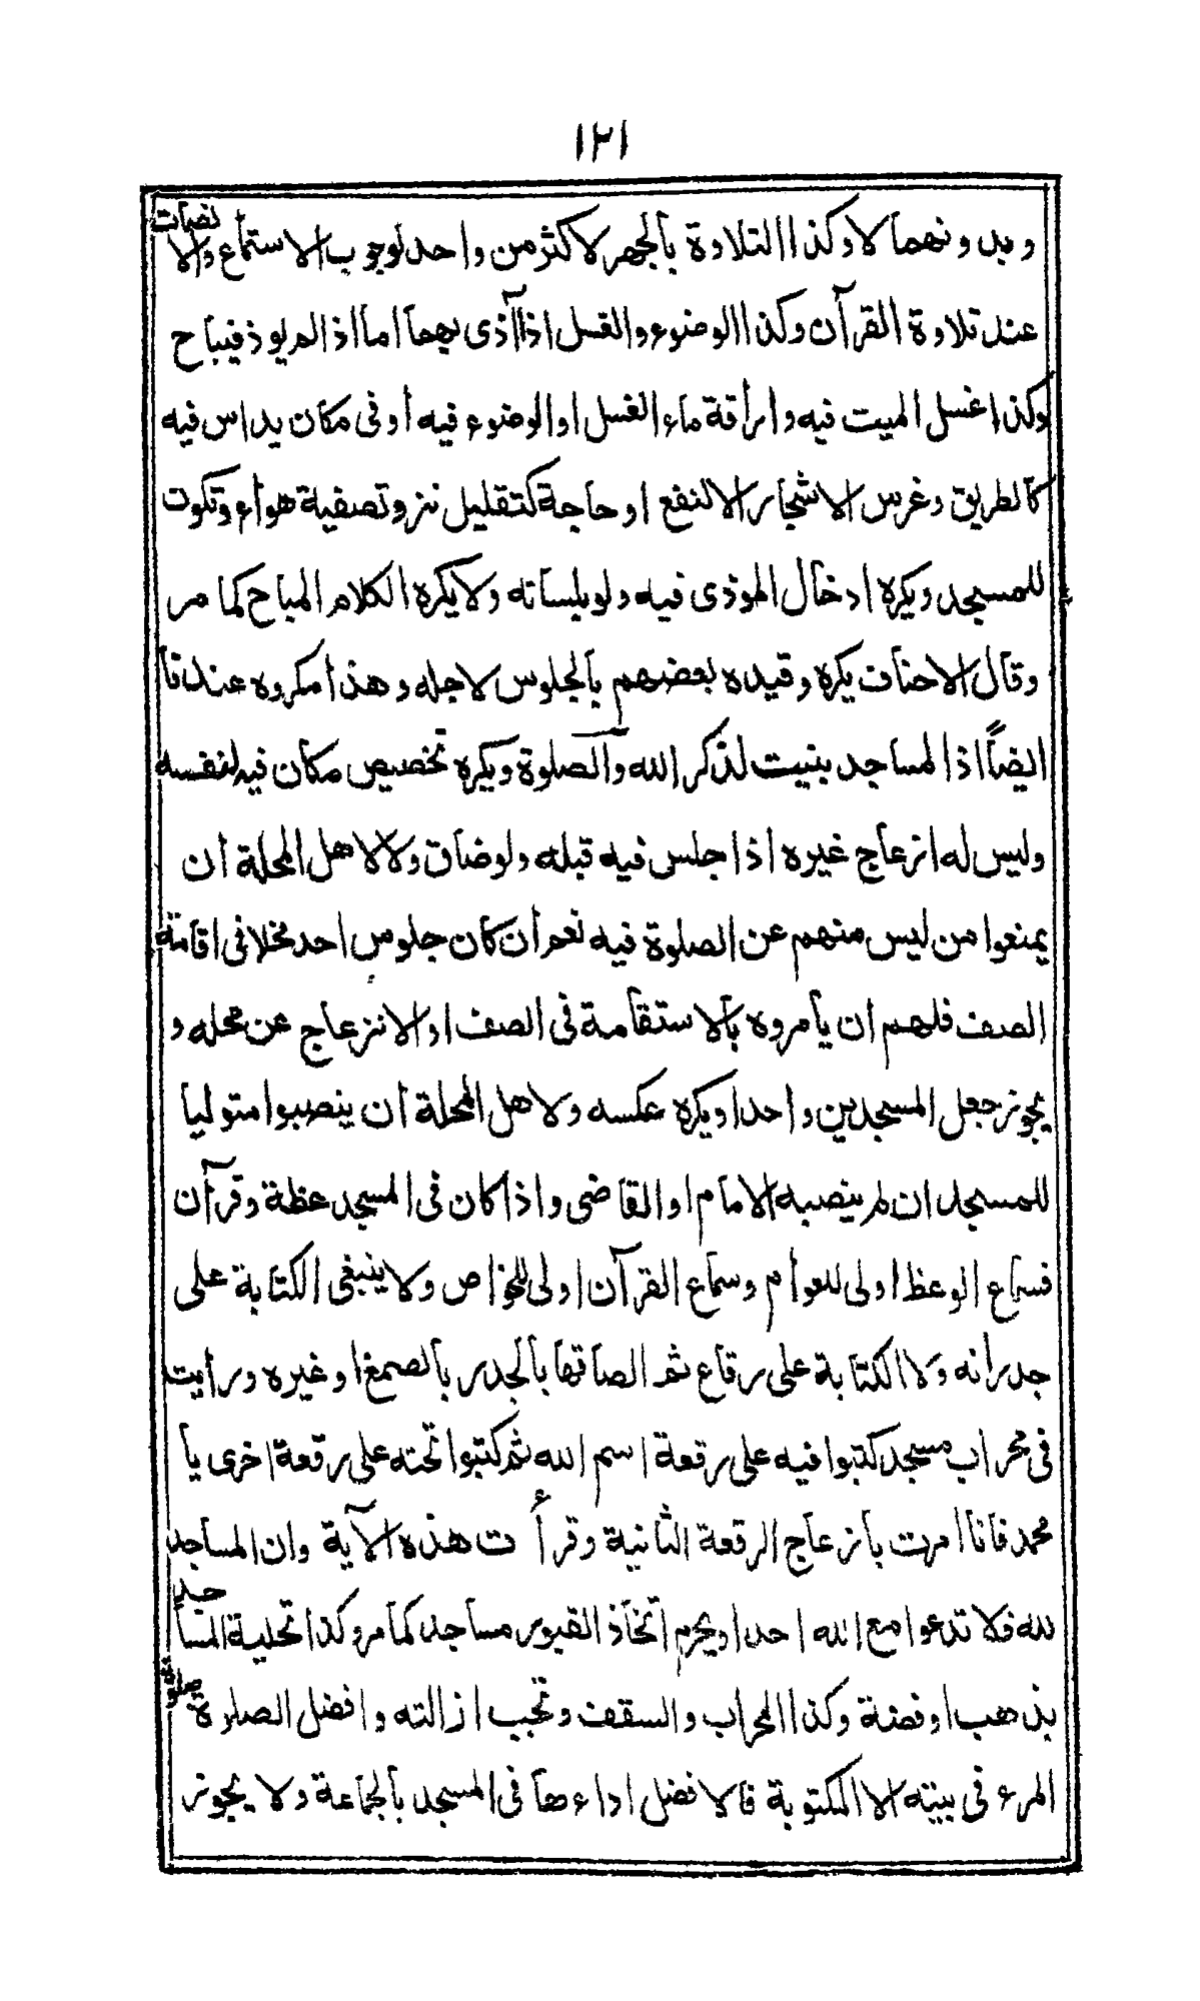 ١٢١
وبدونهما لا وكذا التلاوة بالجهر لاكثر من واحد لوجوب الاستماع والانصات
عند تلاوة القرآن وكذا الوضوء والغسل اذا آذى بهما اما اذا لم يوذ فيباح
وكذا غسل الميت فيه واراقة ماء الغسل او الوضوء فيه أو فى مكان يداس فيه
كالطريق وغرس الاشجار الا لنفع او حاجة كتقليل نز وتصفية هواء وتكون
للمسجد ويكره ادخال الموذى فيه ولو بلسانه ولا يكره الكلام المباح كما مر
وقال الاحناف يكره وقيده بعضهم بالجلوس لاجله وهذا مكروه عندنا
ايضاً اذ المساجد بنيت لذكر الله والصلوة ويكره تخصيص مكان فيه لنفسه
وليس له انزعاج غيره اذا جلس فيه قبله ولو ضاق ولا لاهل المحلة ان
يمنعوا من ليس منهم عن الصلوة فيه نعم ان كان جلوس احد مخلا فى اقامة
الصف فلهم ان يأمروه بالاستقامة فى الصف او الانزعاج عن محله و
يجوز جعل المسجدين واحدا ويكره عكسه ولاهل المحلة أن ينصبوا متوليا
للمسجد ان لم ينصبه الامام او القاضى واذا كان فى المسجد عظة وقرآن
فسماع الوعظ اولى للعوام وسماع القرآن اولى للخواص ولا ينبغى الكتابة على
جدرانه ولا الكتابة على رقاع ثم الصاقها بالجدر بالصمغ او غيره ورأيت
فى محراب مسجد كتبوا فيه على رقعة اسم الله ثم كتبوا تحته على رقعة اخرى يا
محمد فانا امرت بانزعاج الرقعة الثانية وقرأت هذه الآية وان المساجد
لله فلا تدعوا مع الله احدا ويحرم اتخاذ القبور مساجد كما مر وكذا تحلية المساجد
بذهب او فضة وكذا المحراب والسقف وتجب ازالته وافضل الصلوة صلوة
المرء فى بيته الا المكتوبة فالافضل اداءها فى المسجد بالجماعة ولا يجوز